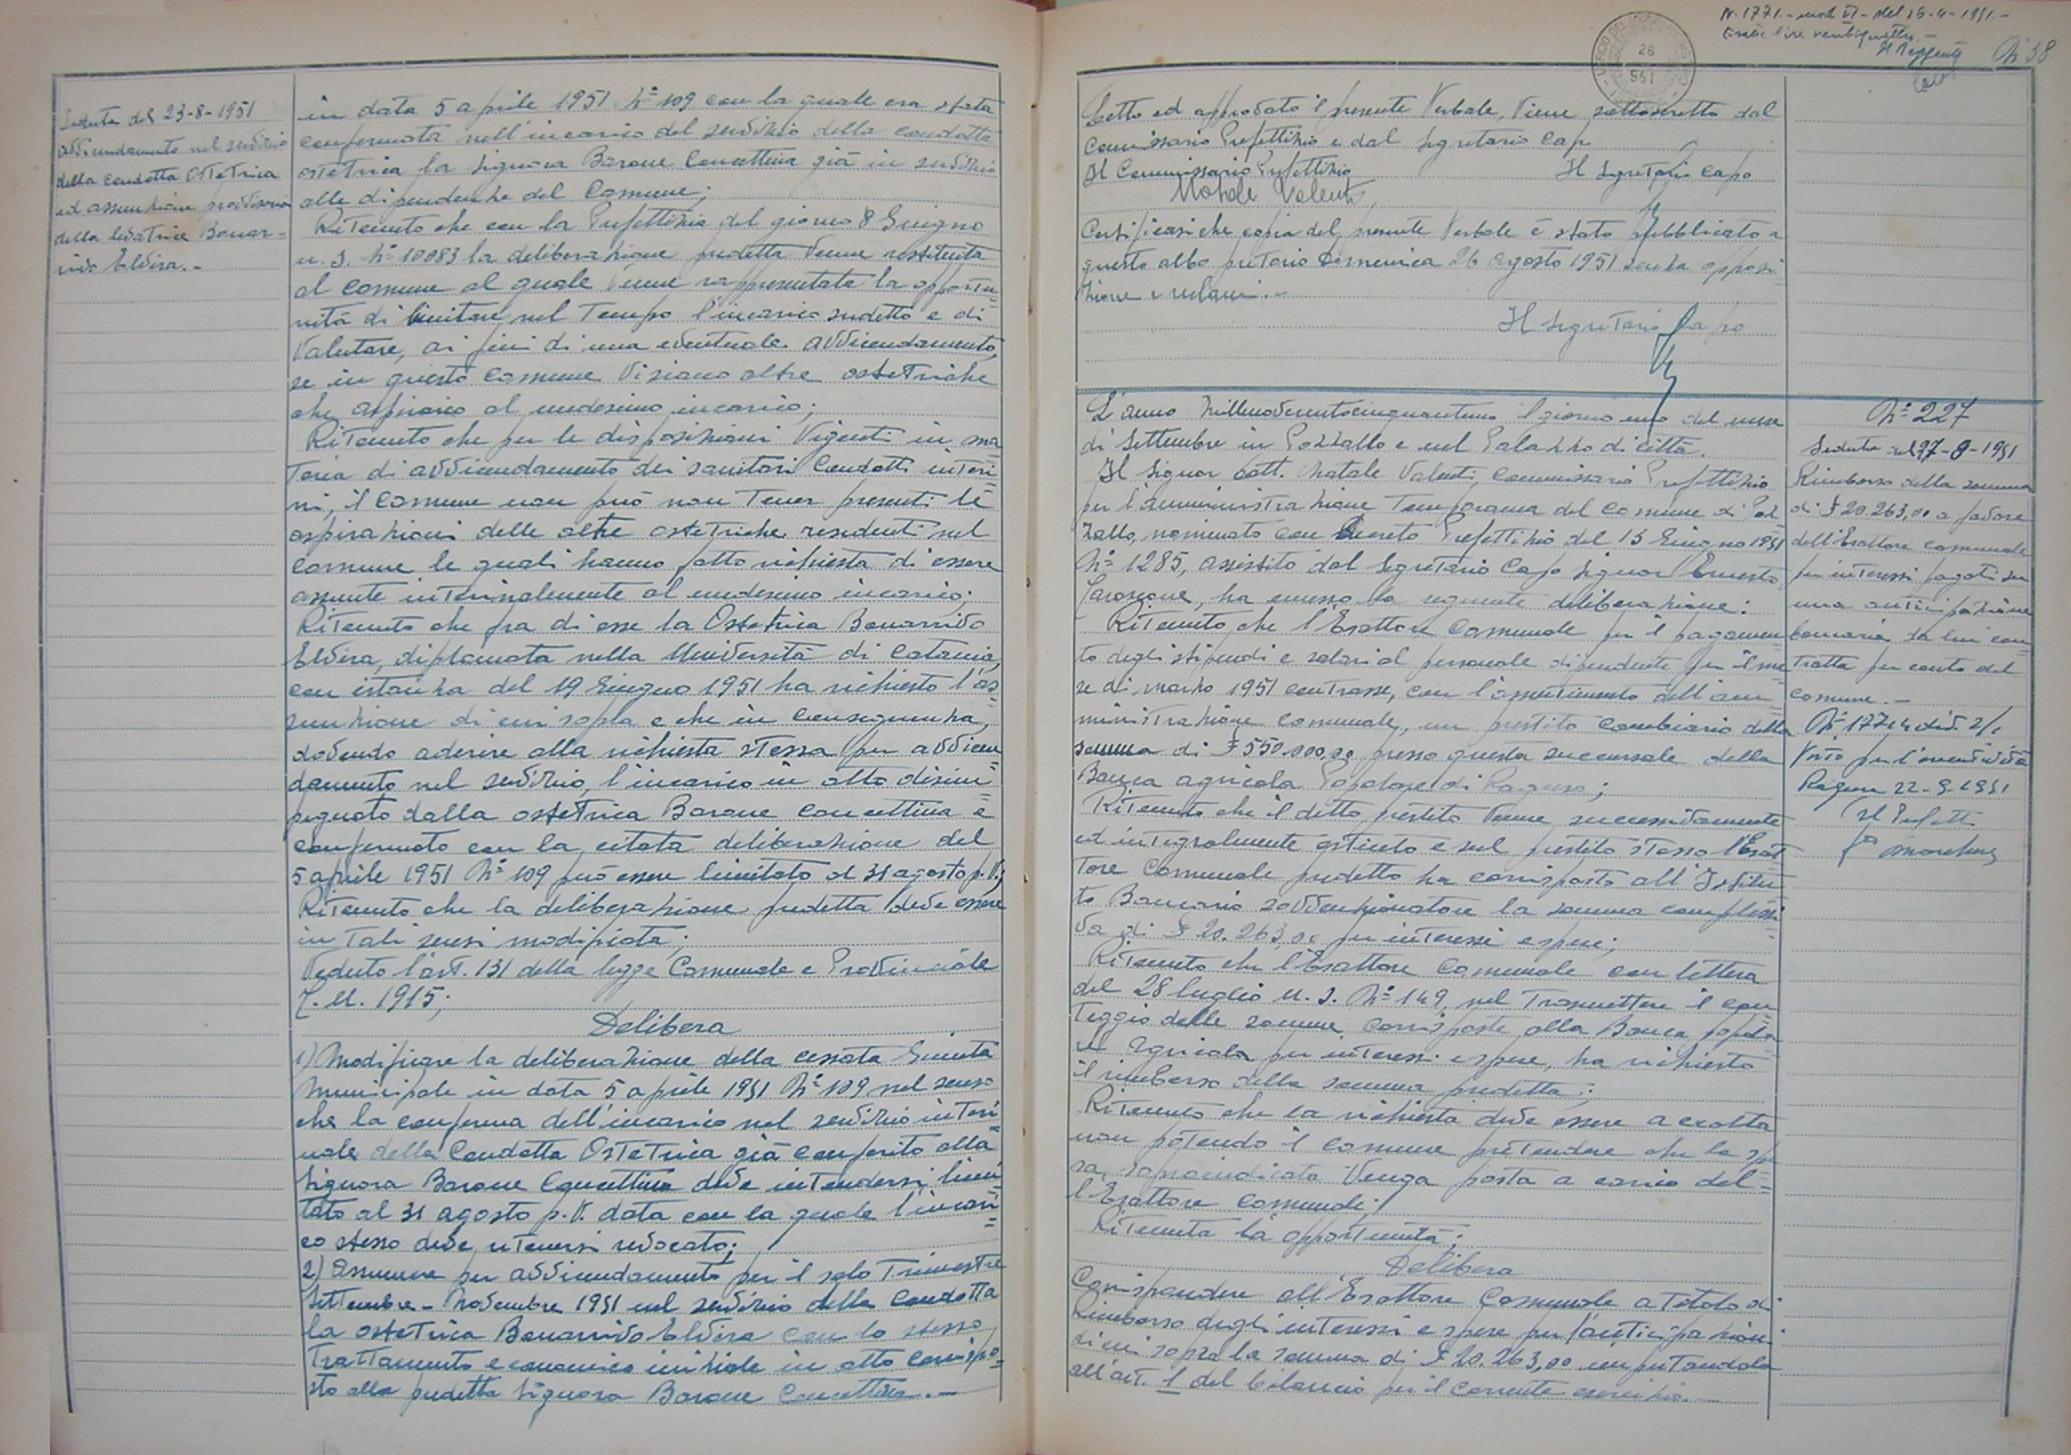 Seduta del 23-8-1951
avvicendamento nel servizio
della condotta ostetrica
ed assunzione provvisoria
della levatrice Bonar=
rivo Elvira.-
in data 5 aprile 1951 N° 109 con la quale era stata
confermata nell'incarico del servizio della condotta
ostetrica la Signora Barone Concettina già in servizio
alle dipendenze del Comune;
Ritenuto che con la Prefettizia del giorno 8 Giugno
u. s. N° 10083 la deliberazione predetta venne restituita
al comune al quale venne rappresentata la opportu=
nità di limitare nel tempo l'incarico sudetto e di
valutare, ai fini di una eventuale avvicendamento,
se in questo comune vi siano altre ostetriche
che aspirano al medesimo incarico;
Ritenuto che per le disposizioni vigenti in ma=
teria di avvicendamento dei sanitari condotti interi=
ni, il comune non può non tener presenti le
aspirazioni delle altre ostetriche residenti nel
comune le quali hanno fatto richiesta di essere
assunte interinalmente al medesimo incarico;
Ritenuto che fra di esse la Ostetrica Bonarrivo
Elvira, diplomata nella Università di Catania,
con istanza del 19 Giugno 1951 ha richiesto l'as=
sunzione di cui sopra e che in conseguenza,
dovendo aderire alla richiesta stessa per avvicen=
damento nel servizio, l'incarico in atto disim=
pegnato dalla ostetrica Barone Concettina e
confermato con la citata deliberazione del
5 aprile 1951 N° 109 può essere limitato al 31 agosto p.v.;
Ritenuto che la deliberazione predetta deve essere
in tali sensi modificata;
Veduto l'art. 131 della legge Comunale e Provinciale
T. U. 1915;
Delibera
1) Modificare la deliberazione della cessata Giunta
Municipale in data 5 aprile 1951 N° 109 nel senso
che la conferma dell'incarico nel servizio interi=
nale della Condotta Ostetrica già conferito alla
Signora Barone Concettina deve intendersi limi=
tato al 31 agosto p.v. data con la quale l'incari=
co stesso deve ritenersi revocato;
2) Assumere per avvicendamento per il solo Trimestre
Settembre - Novembre 1951 nel servizio della Condotta
la ostetrica Bonarrivo Elvira con lo stesso
trattamento economico iniziale in atto corrispo=
sto alla predetta Signora Barone Concettina.-
N. 1771.- mod. II - del 25-4-1951.-
Esatte lire ventiquattro.-
Il Reggente
N° 38
26
951
Letto ed approvato il presente Verbale, viene sottoscritto dal
Commissario Prefettizio e dal Segretario Capo
Il Commissario Prefettizio
Il Segretario Capo
Natale Valenti
Certificasi che copia del presente Verbale è stato pubblicato a
questo albo pretorio Domenica 26 agosto 1951 senza opposi=
zione e reclami.-
Il Segretario Capo
L'anno millenovecentocinquantuno il giorno uno del mese
di Settembre in Pozzallo e nel Palazzo di città.
Il Signor dott. Natale Valenti, Commissario Prefettizio
per l'amministrazione temporanea del comune di Poz=
zallo, nominato con decreto Prefettizio del 15 Giugno 1951
N° 1285, assistito dal Segretario Capo Signor Ernesto
ha emesso la seguente deliberazione:
Ritenuto che l'Esattore Comunale per il pagamen=
to degli stipendi e salari al personale dipendente per il me=
se di marzo 1951 contrasse, con l'assentimento dell'am=
ministrazione comunale, un prestito cambiario della
somma di £ 550.000,00 presso questa succursale della
Banca agricola Popolare di Ragusa;
Ritenuto che il detto prestito venne successivamente
ed integralmente estinto e sul prestito stesso l'Esat=
tore Comunale predetto ha corrisposto all'Istitu=
to Bancario sovvenzionatore la somma complessi=
va di £ 20.263,00 per interessi e spese;
Ritenuto che l'Esattore Comunale con lettera
del 28 luglio u. s. N° 149 nel trasmettere il con=
teggio delle somme corrisposte alla Banca popola=
re Agricola per interessi e spese, ha richiesto
il rimborso della somma predetta;
Ritenuto che la richiesta deve essere accolta
non potendo il comune pretendere che la spe=
sa sopraindicata venga posta a carico del=
l'Esattore Comunale;
Ritenuta la opportunità;
Delibera
Corrispondere all'Esattore Comunale a titolo di
Rimborso degli interessi e spese per l'anticipazione
di cui sopra la somma di £ 20.263,00 imputandola
all'art. 1 del bilancio per il corrente esercizio.-
N° 227
Seduta del 27-8-1951
Rimborso della somma
di £ 20.263,00 a favore
dell'Esattore comunale
per interessi pagati su
una anticipazione
bancaria da lui con=
tratta per conto del
comune.-
N° 17714 div. 2/1
Visto per l'esecutività
Ragusa 22-9-1951
Il Prefetto